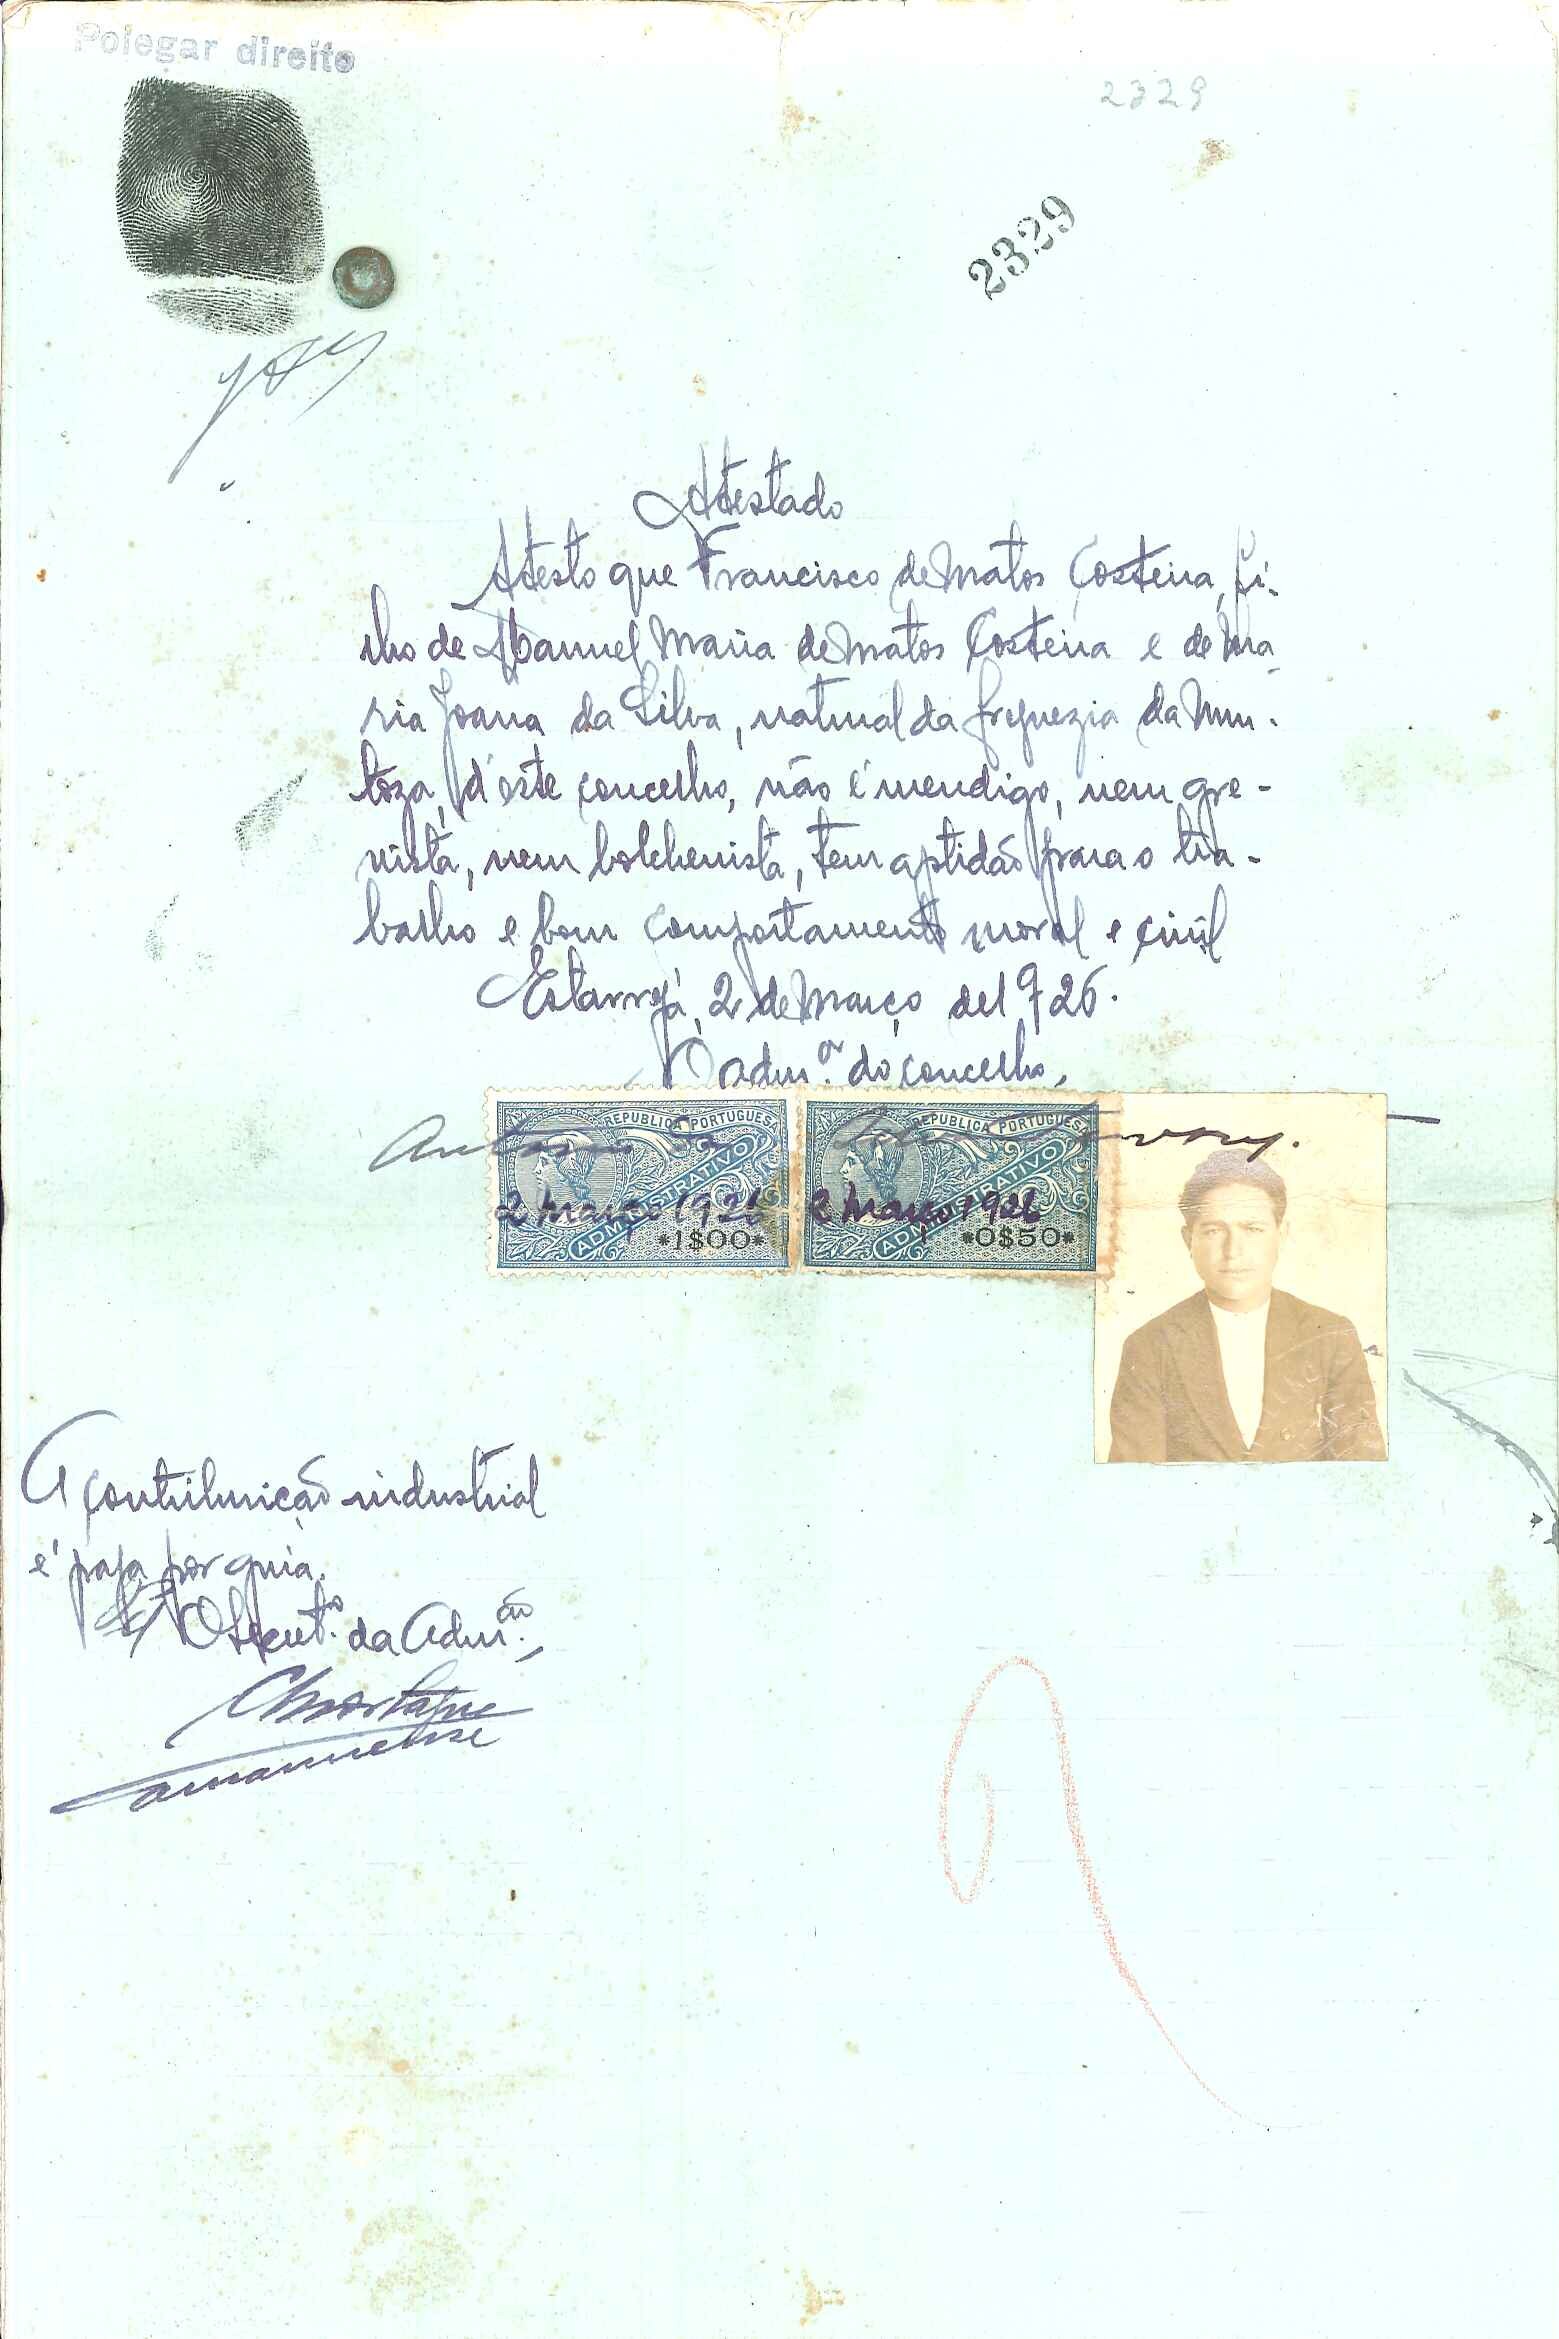 Polegar direito
2329
2329
Atestado
Atesto que Francisco de Matos Costeira, fi-
lho de Manuel Maria de Matos Costeira e de Ma-
ria Joana da Silva, natural da freguezia da Mur-
toza, d'este concelho, não é mendigo, nem gre-
vista, nem bolchevista, tem aptidão para o tra-
balho e bom comportamento moral e civil
Estarreja, 2 de Março de 1926.
O adm.or do concelho,
REPUBLICA PORTUGUESA
ADMINISTRATIVO
2 Março 1926
*1$00*
REPUBLICA PORTUGUESA
ADMINISTRATIVO
2 Março 1926
*0$50*
Antonio
A contribuição industrial
é paga por guia.
O Secret.º da Adm.ção,
amanuense